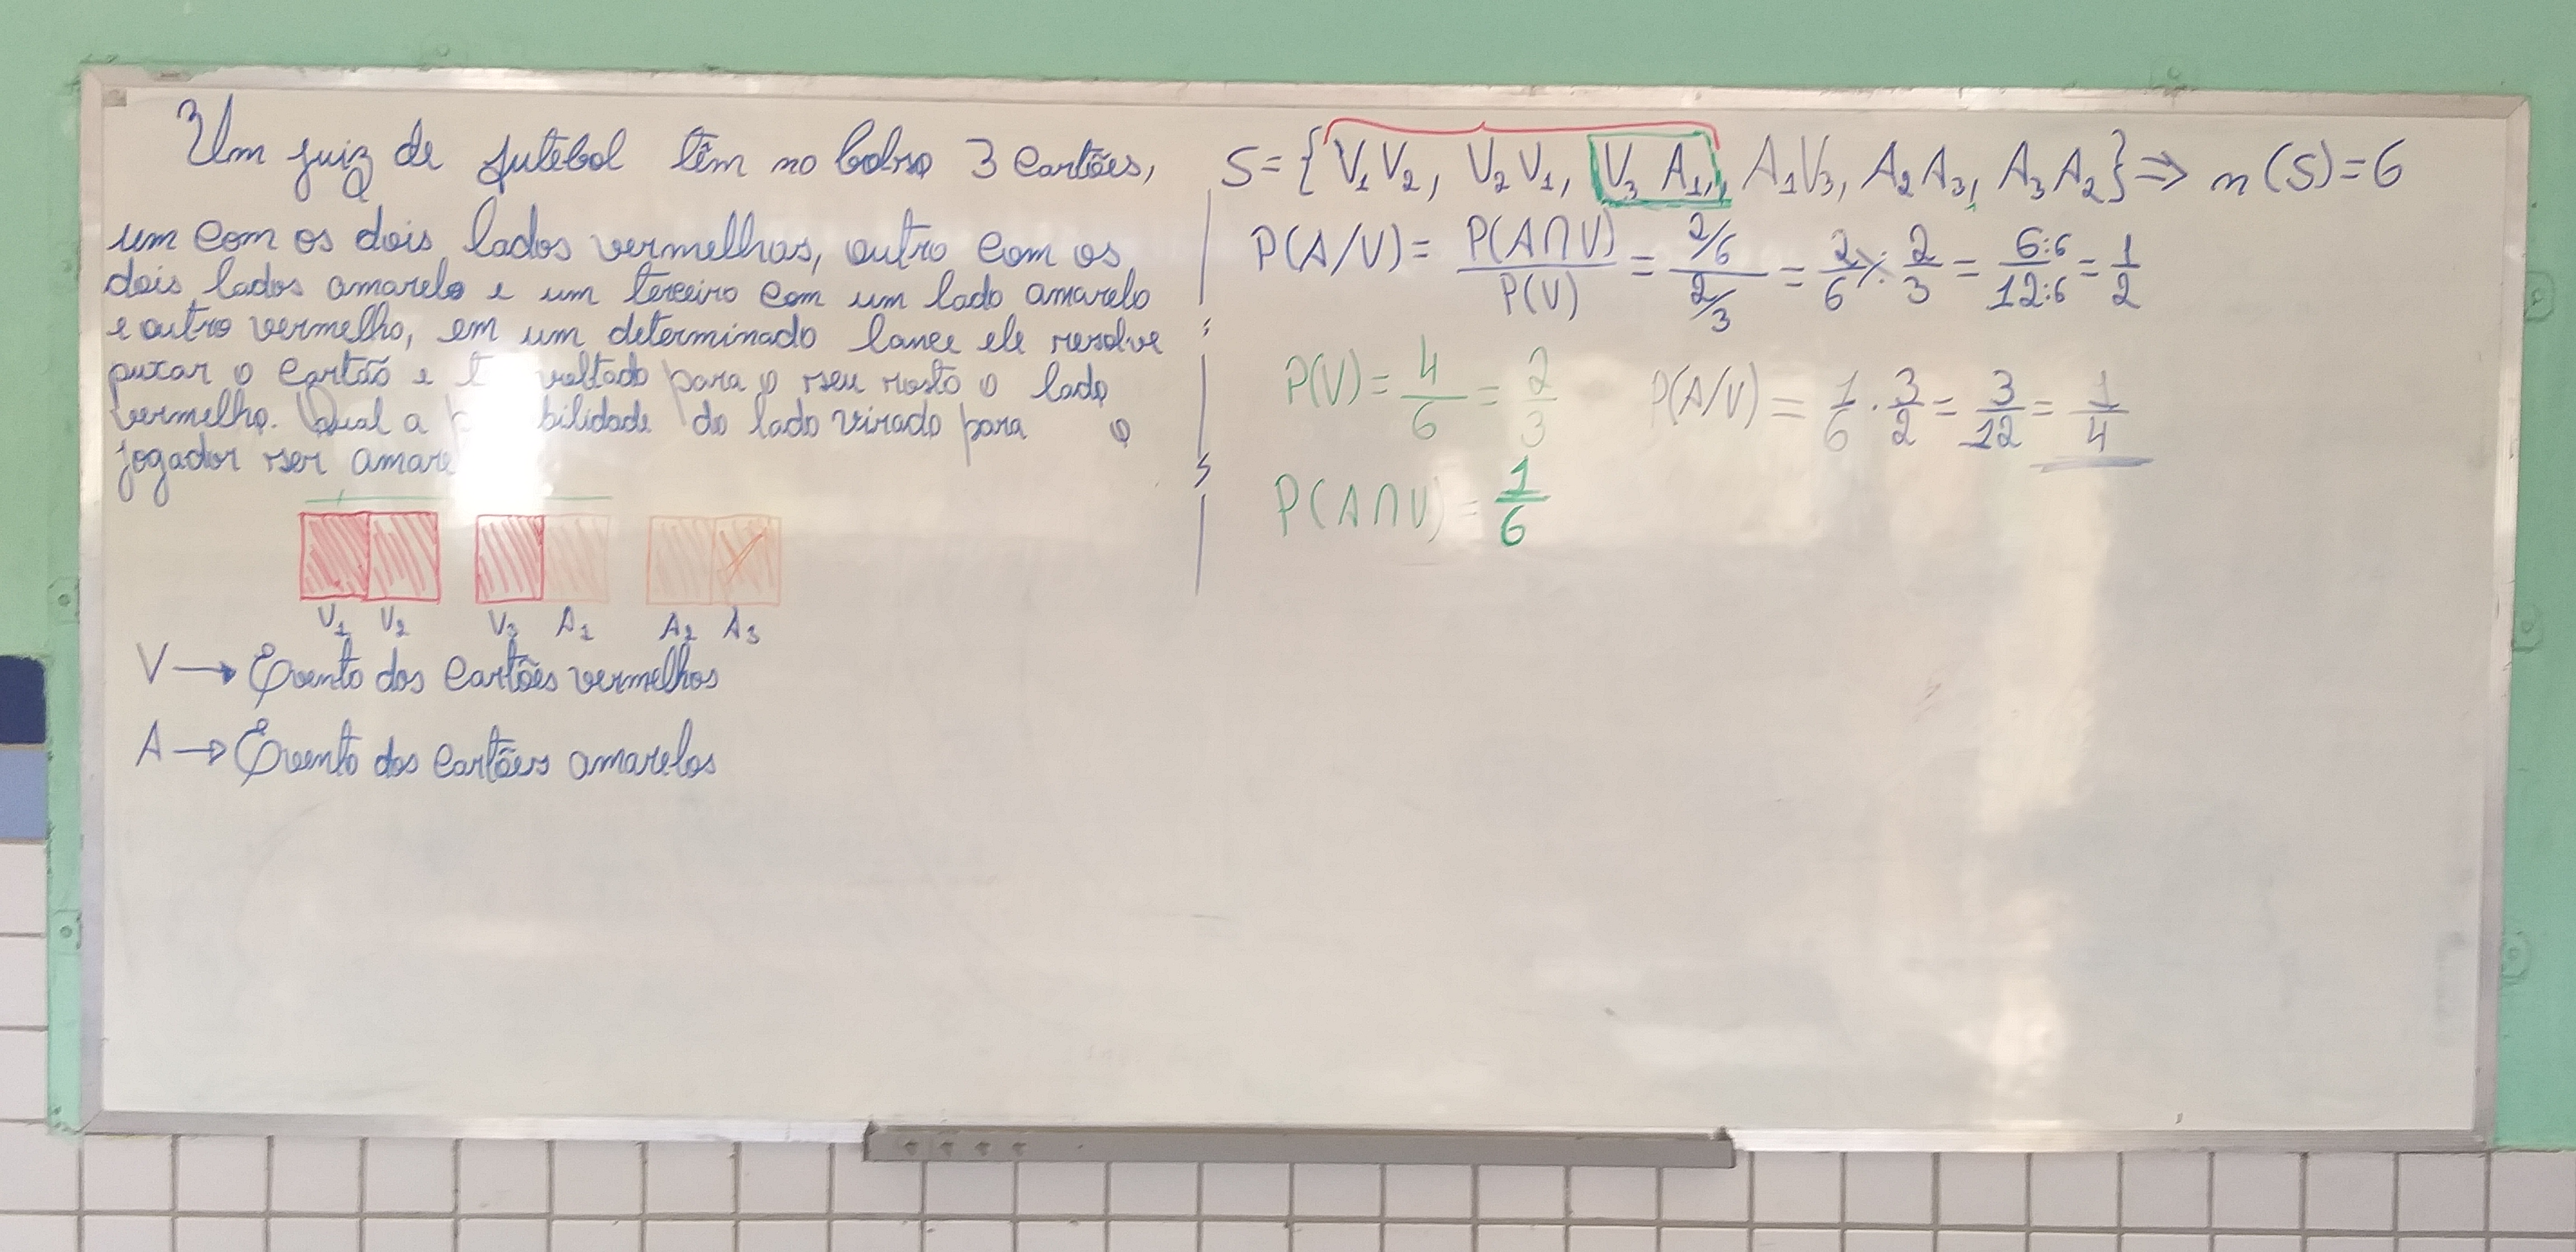 Um juiz de futebol têm no bolso 3 cartões,
um com os dois lados vermelhos, outro com os
dois lados amarelo e um terceiro com um lado amarelo
e outro vermelho, em um determinado lance ele resolve
puxar o cartão e voltado para o seu rosto o lado
vermelho. Qual a do lado virado para o
jogador ser
V₁ V₂ V₃ A₁ A₂ A₃
V → Evento dos cartões vermelhos
A → Evento dos cartões amarelos
S = {V₁V₂, V₂V₁, V₃A₁, A₁V₃, A₂A₃, A₃A₂} ⇒ n(S)=6
P(A/V) = P(A∩V)/P(V) = (2/6)/(2/3) = 2/6 ÷ 2/3 = 6:6/12:6 = 1/2
P(V) = 4/6 = 2/3 P(A/V) = 1/6 · 3/2 = 3/12 = 1/4
P(A∩V) = 1/6